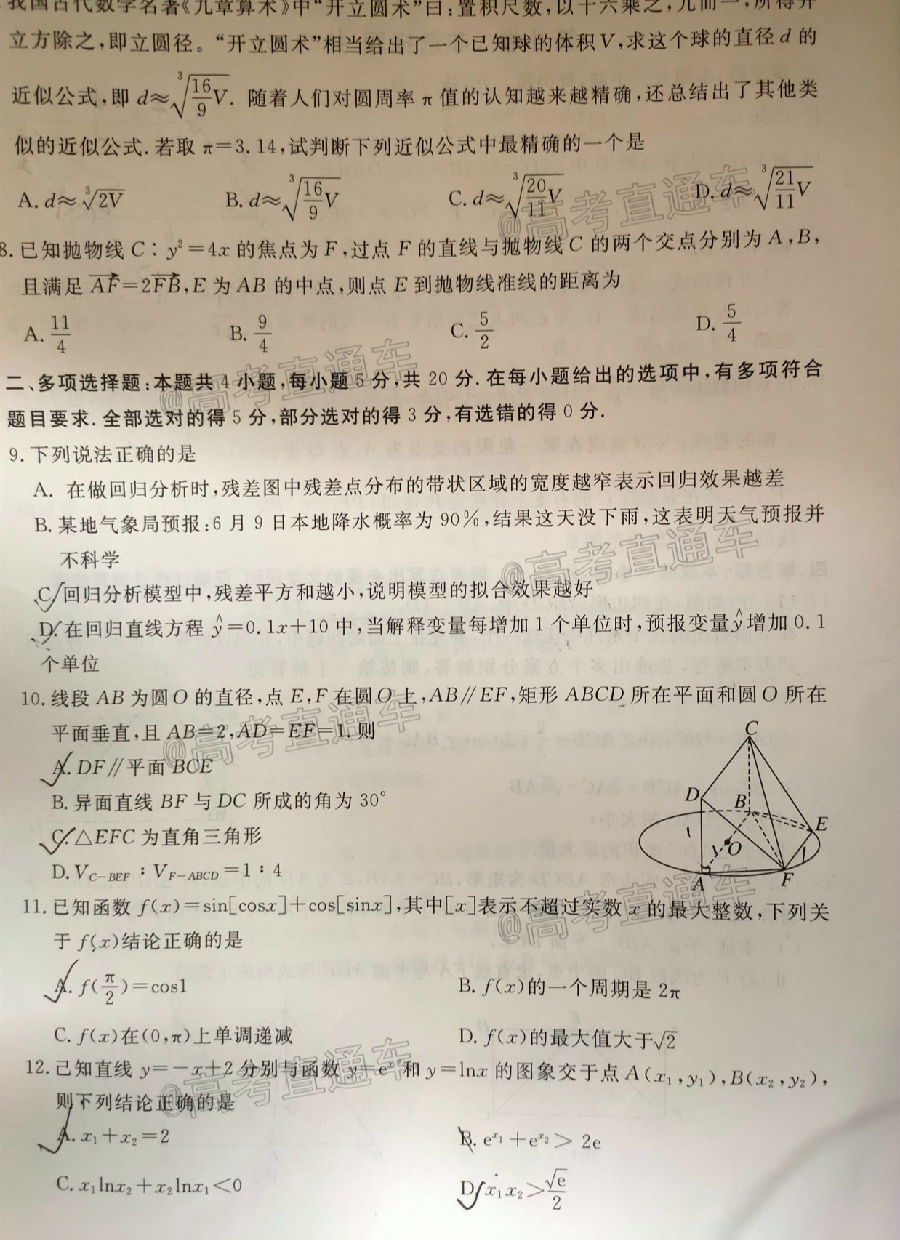 我国古代数学名著《九章算术》中“开立圆术”曰:置积尺数,以十六乘之,九而一,所得开
立方除之,即立圆径。“开立圆术”相当给出了一个已知球的体积V,求这个球的直径 d 的
近似公式,即 d≈∛(16/9 V). 随着人们对圆周率 π 值的认知越来越精确,还总结出了其他类
似的近似公式.若取 π=3.14,试判断下列近似公式中最精确的一个是
A. d≈∛(2V) B. d≈∛(16/9 V) C. d≈∛(20/11 V) D. d≈∛(21/11 V)
8.已知抛物线 C:y²=4x 的焦点为 F,过点 F 的直线与抛物线 C 的两个交点分别为 A,B,
且满足 AF→=2FB→,E 为 AB 的中点,则点 E 到抛物线准线的距离为
A. 11/4 B. 9/4 C. 5/2 D. 5/4
二、多项选择题:本题共 4 小题,每小题 5 分,共 20 分.在每小题给出的选项中,有多项符合
题目要求.全部选对的得 5 分,部分选对的得 3 分,有选错的得 0 分.
9.下列说法正确的是
A. 在做回归分析时,残差图中残差点分布的带状区域的宽度越窄表示回归效果越差
B.某地气象局预报:6 月 9 日本地降水概率为 90%,结果这天没下雨,这表明天气预报并
不科学
C.回归分析模型中,残差平方和越小,说明模型的拟合效果越好
D.在回归直线方程 ŷ=0.1x+10 中,当解释变量每增加 1 个单位时,预报变量 ŷ 增加 0.1
个单位
10.线段 AB 为圆 O 的直径,点 E,F 在圆 O 上,AB∥EF,矩形 ABCD 所在平面和圆 O 所在
平面垂直,且 AB=2,AD=EF=1.则
A. DF∥平面 BCE
B.异面直线 BF 与 DC 所成的角为 30°
C.△EFC 为直角三角形
D. V_{C-BEF}:V_{F-ABCD}=1:4
C
D
B
E
O
A
F
1
1
1
11.已知函数 f(x)=sin[cosx]+cos[sinx],其中[x]表示不超过实数 x 的最大整数,下列关
于 f(x)结论正确的是
A. f(π/2)=cos1 B. f(x)的一个周期是 2π
C. f(x)在(0,π)上单调递减 D. f(x)的最大值大于√2
12.已知直线 y=-x+2 分别与函数 y=eˣ 和 y=lnx 的图象交于点 A(x₁,y₁),B(x₂,y₂),
则下列结论正确的是
A. x₁+x₂=2 B. e^{x₁}+e^{x₂}>2e
C. x₁lnx₂+x₂lnx₁<0 D. x₁x₂>√e/2
@高考直通车
@高考直通车
@高考直通车
@高考直通车
@高考直通车
@高考直通车